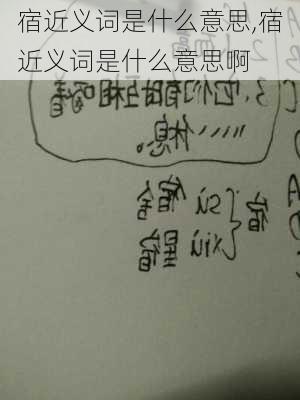 宿近义词是什么意思,宿
近义词是什么意思啊
3、它们有互相着
休息。
宿 { sù 宿舍
xiù 星宿